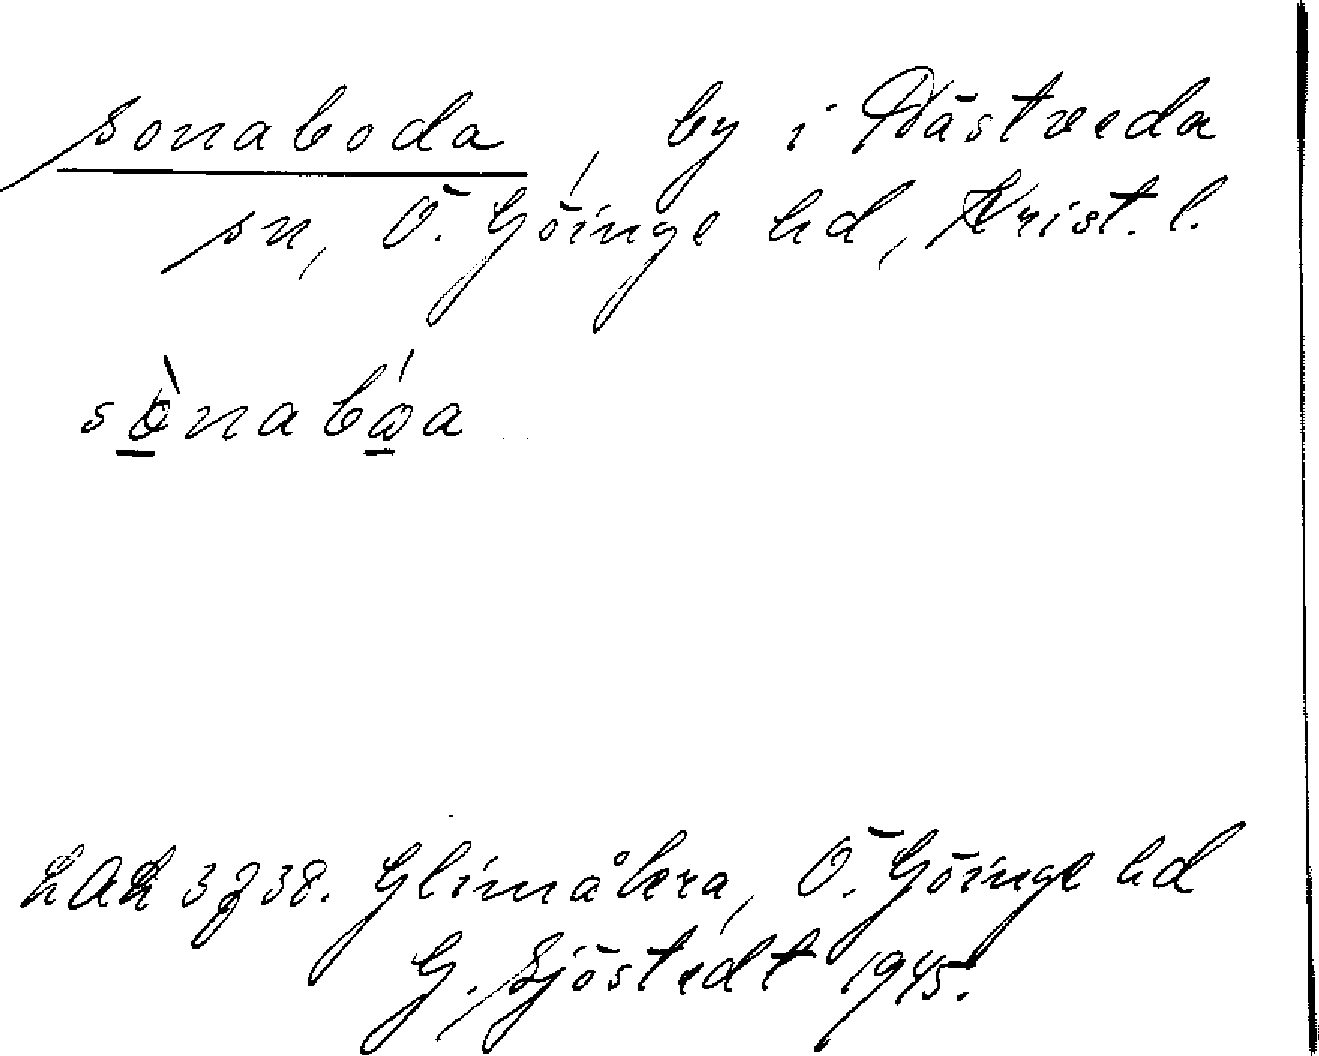 Sonaboda, by i Hästveda
sn, Ö. Göinge hd, Krist. l.
sònabóa
LAL 3738. Glimåkra, Ö. Göinge hd
G. Sjöstedt 1945.